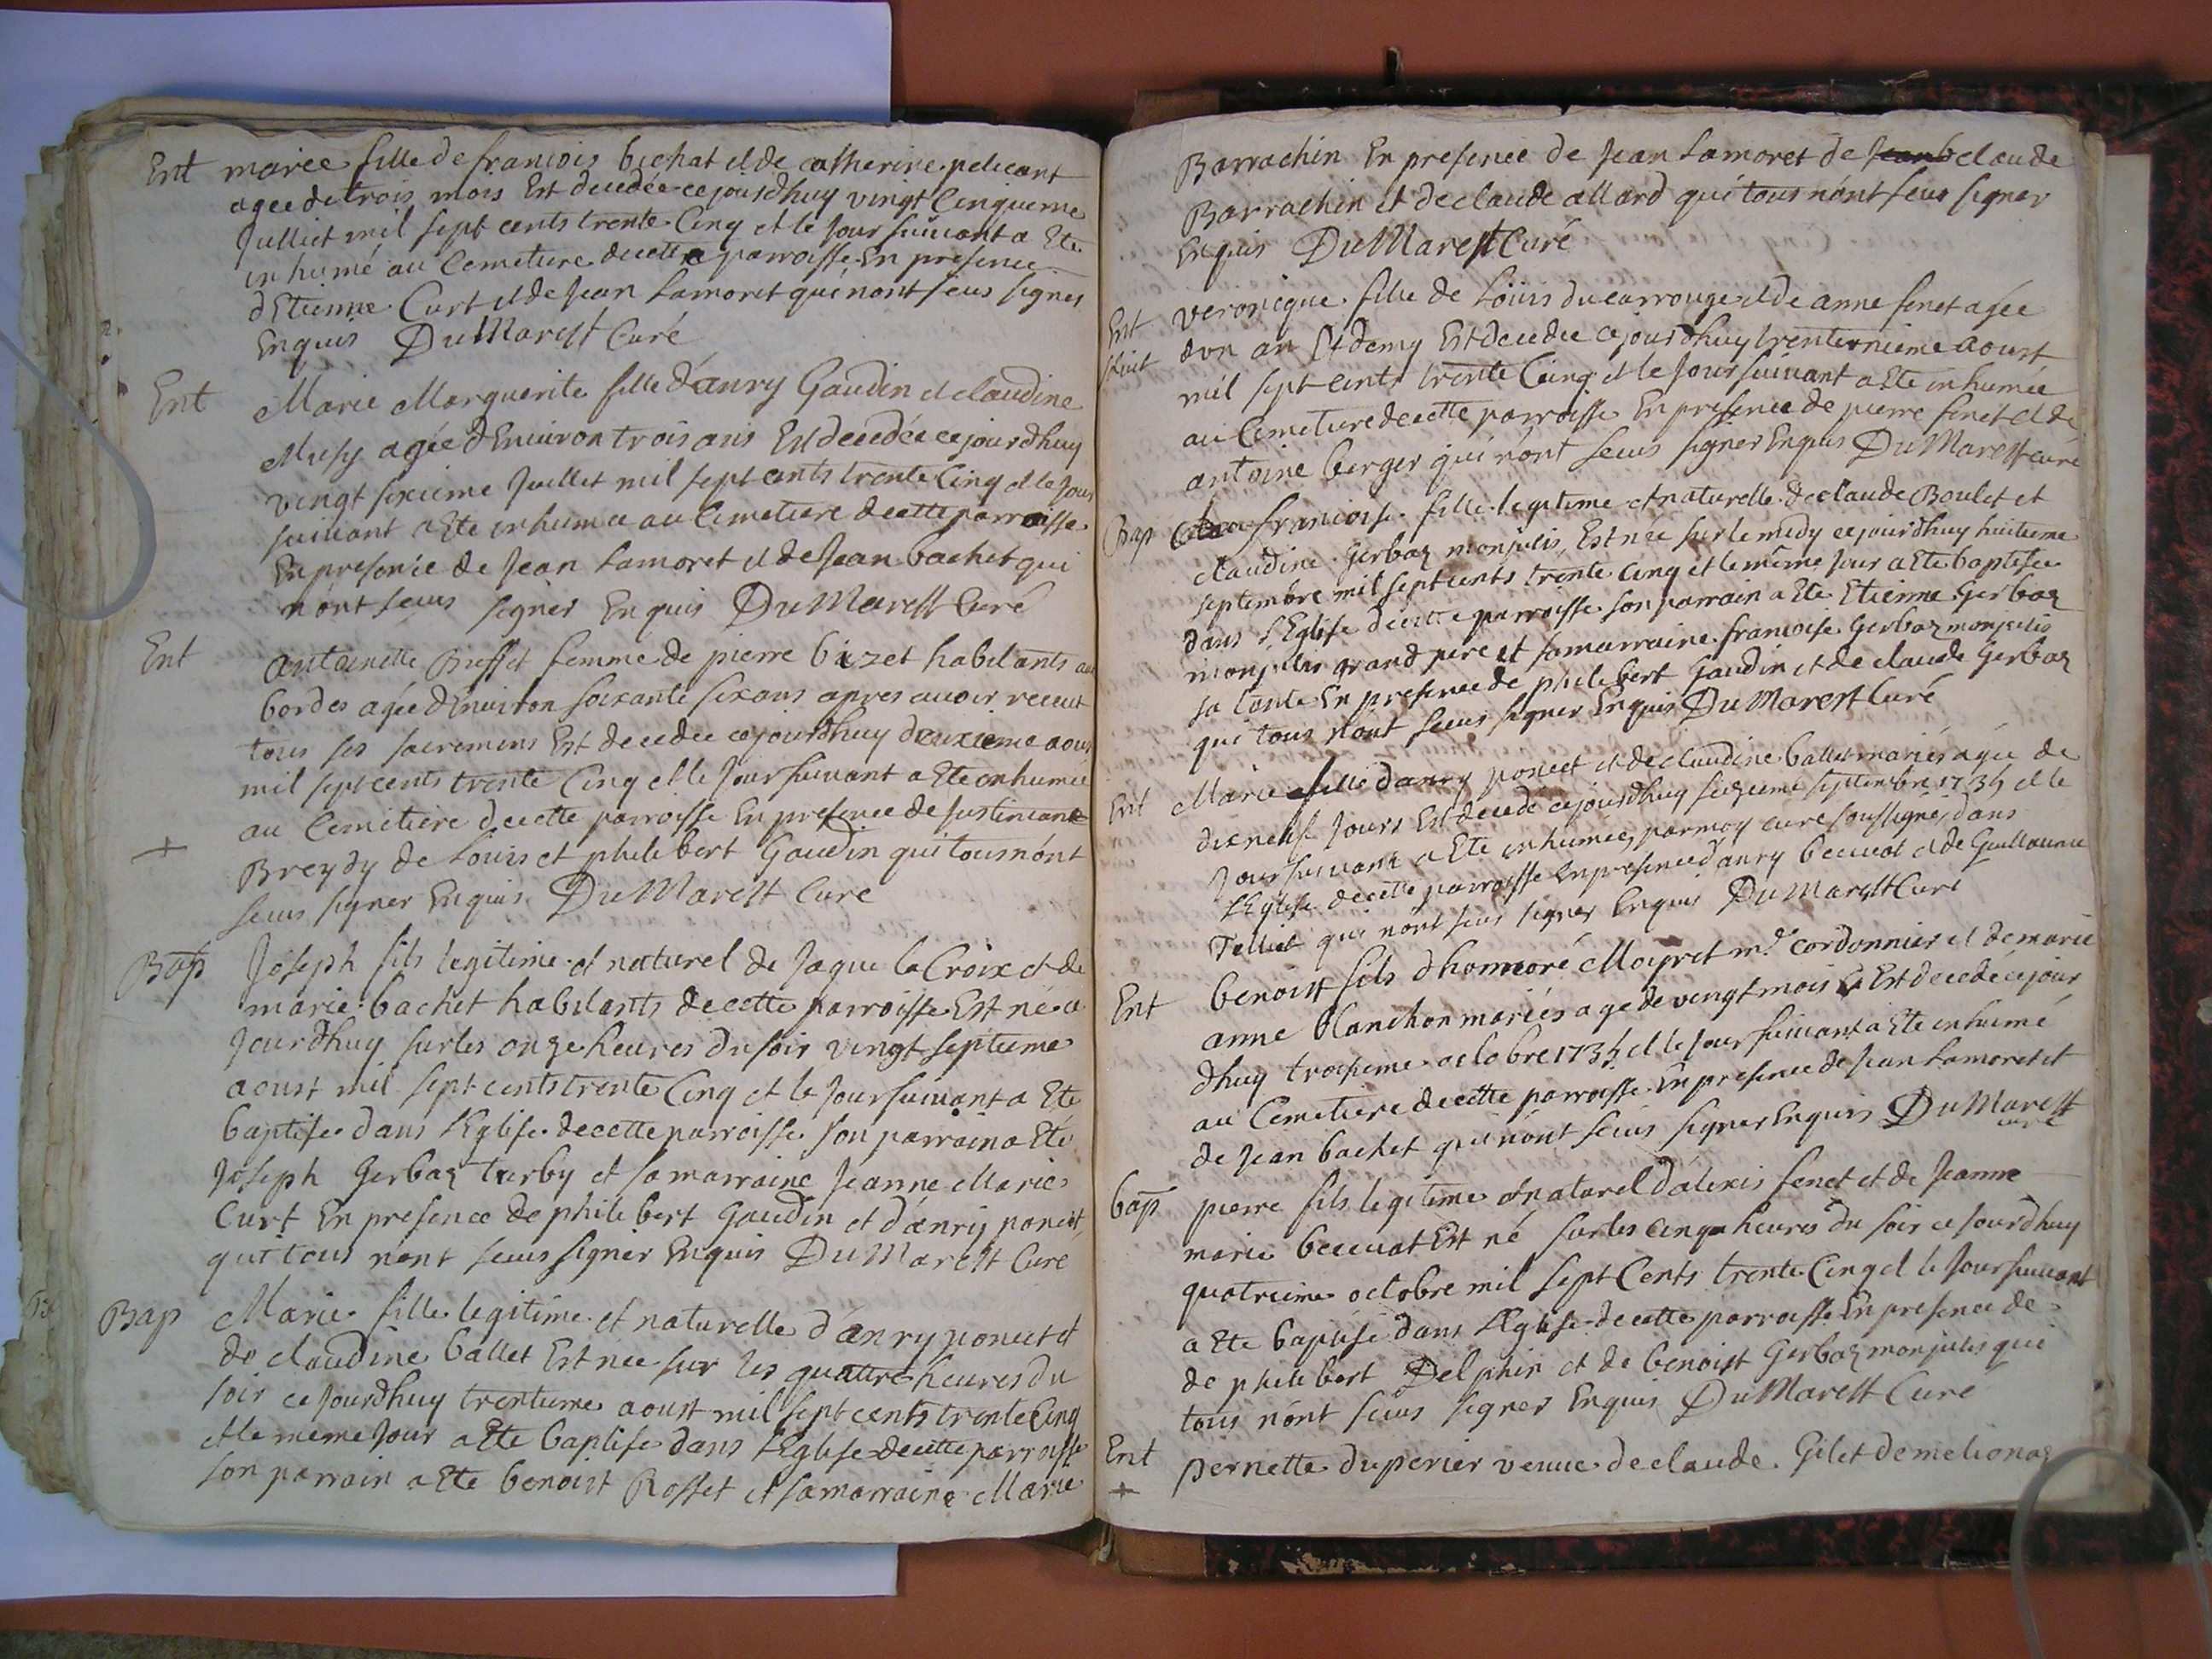 Ent marie fille de francois bichat et de catherine pelicant
agee de trois mois Est decedée cejourdhuy vingt Cinquieme
Julliet mil sept cents trente Cinq et le Jour suivant a Ete
inhumé au Cemeture decette parroisse En presence
dEtienne Curt et de Jean Lamoret qui nont seus signer
Enquis DuMarest Curé
Ent Marie Marguerite fille d'anry Gaudin et claudine
Musy agée dEnviron trois ans Est decedée cejourdhuy
vingt sixieme Juillet mil sept cents trente Cinq et le Jour
suivant a Ete inhumee au Cimetiere decette parroisse
En presence de Jean Lamoret et de Jean bachet qui
n'ont seus signer Enquis DuMarest Curé
Ent antoinette Bresset femme de pierre bizet habitants aux
bordes agée dEnviron soixante six ans apres avoir receut
tous ses sacremens Est decedee cejourdhuy deuxieme aoust
mil sept cents trente Cinq et le Jour suivant a Ete inhumée
au Cemitiere decette parroisse En presence de
+ Breydy de Louis et philibert Gaudin qui tous n'ont
seus signer Enquis DuMarest Cure
Bap Joseph fils legitime et naturel de Jaque la Croix et de
marie bachet habitants decette parroisse Est né ce
Jourdhuy sur les onze heures du soir vingt septieme
aoust mil sept cents trente Cinq et le Jour suivant a Ete
baptise dans lEglise decette parroisse son parrain a Eté
Joseph Gerbaz turby et sa marraine Jeanne Marie
Curt En presence de philibert Gaudin et d'anry poncet
qui tous nont seus signer Enquis DuMarest Cure
Bap Marie fille legitime et naturelle d'anry poncet et
de claudine ballet Est nee sur les quattre heures du
soir ce Jourdhuy trentieme aoust mil sept cents trente Cinq
et le meme Jour a Ete baptise dans lEglise decette parroisse
son parrain a Ete benoist Rosset et sa marraine Marie
Barrachin En presence de Jean Lamoret de claude
Barrachin et de claude allard qui tous n'ont seus signer
Enquis DuMarest Curé
Ent veronicque fille de Louis ducarrouge et de anne fenet agée
dvn an Et demy Est decedee cejourdhuy trente vnieme aoust
mil sept cents trente Cinq et le Jour suivant a Ete inhumée
au Cemeture decette parroisse En presence de pierre fenet et de
antoine berger qui n'ont seus signer Enquis DuMarest curé
Bap francoise fille legitime et naturelle de claude Boulet et
claudine Gerbaz monjulis Est née sur le medy cejourdhuy huitieme
septembre mil sept cents trente Cinq et le même Jour a Ete baptisee
dans l'Eglise decette parroisse son parrain a Ete Etienne Gerbaz
monjulis grand pere et sa marraine francoise Gerbaz monjulis
sa tante En presence de philibert Gaudin et de claude Gerbaz
qui tous n'ont seus signer Enquis DuMarest Curé
Ent Marie fille d'anry poncet et de claudine ballet mariés agée de
dixneuf Jours Est decedé cejourdhuy seizieme septembre 1735 et le
Jour suivant a Ete inhumee par moy curé soussigné dans
l'Eglise decette parroisse En presence d'anry becuat et de Guillaume
Telliet qui n'ont seus signer Enquis DuMarest Curé
Ent benoist fils dhonnoré Moyret md cordonnier et de marie
anne blanchon mariés agé de vingt mois Est decedé cejour
dhuy troisieme octobre 1735 et le Jour suivant a Ete inhumé
au Cemetiere decette parroisse En presence de Jean Lamoret et
de Jean bachet qui n'ont seus signer Enquis DuMarest
curé
bap pierre fils legitime et naturel d'alexis fenet et de Jeanne
marie becuat Est né sur les cinq heures du soir ce Jourdhuy
quatrieme octobre mil sept Cents trente Cinq et le Jour suivant
a Ete baptisé dans l'Eglise decette parroisse En presence de
de philibert Delphin et de benoist Gerbaz monjulis qui
tous n'ont seus signer Enquis DuMarest Curé
Ent pernette duperier veuve de claude Gilet de melionaz
+